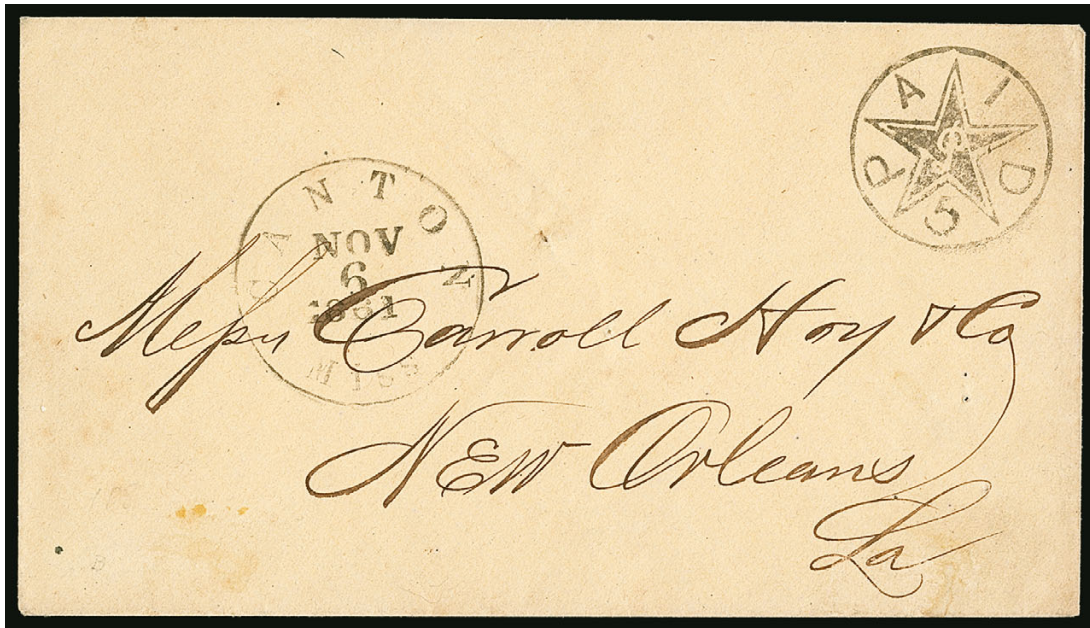 PAID
5
CANTON
NOV
6
1861
MISS
Messrs Carroll Hoy & Co
New Orleans
La